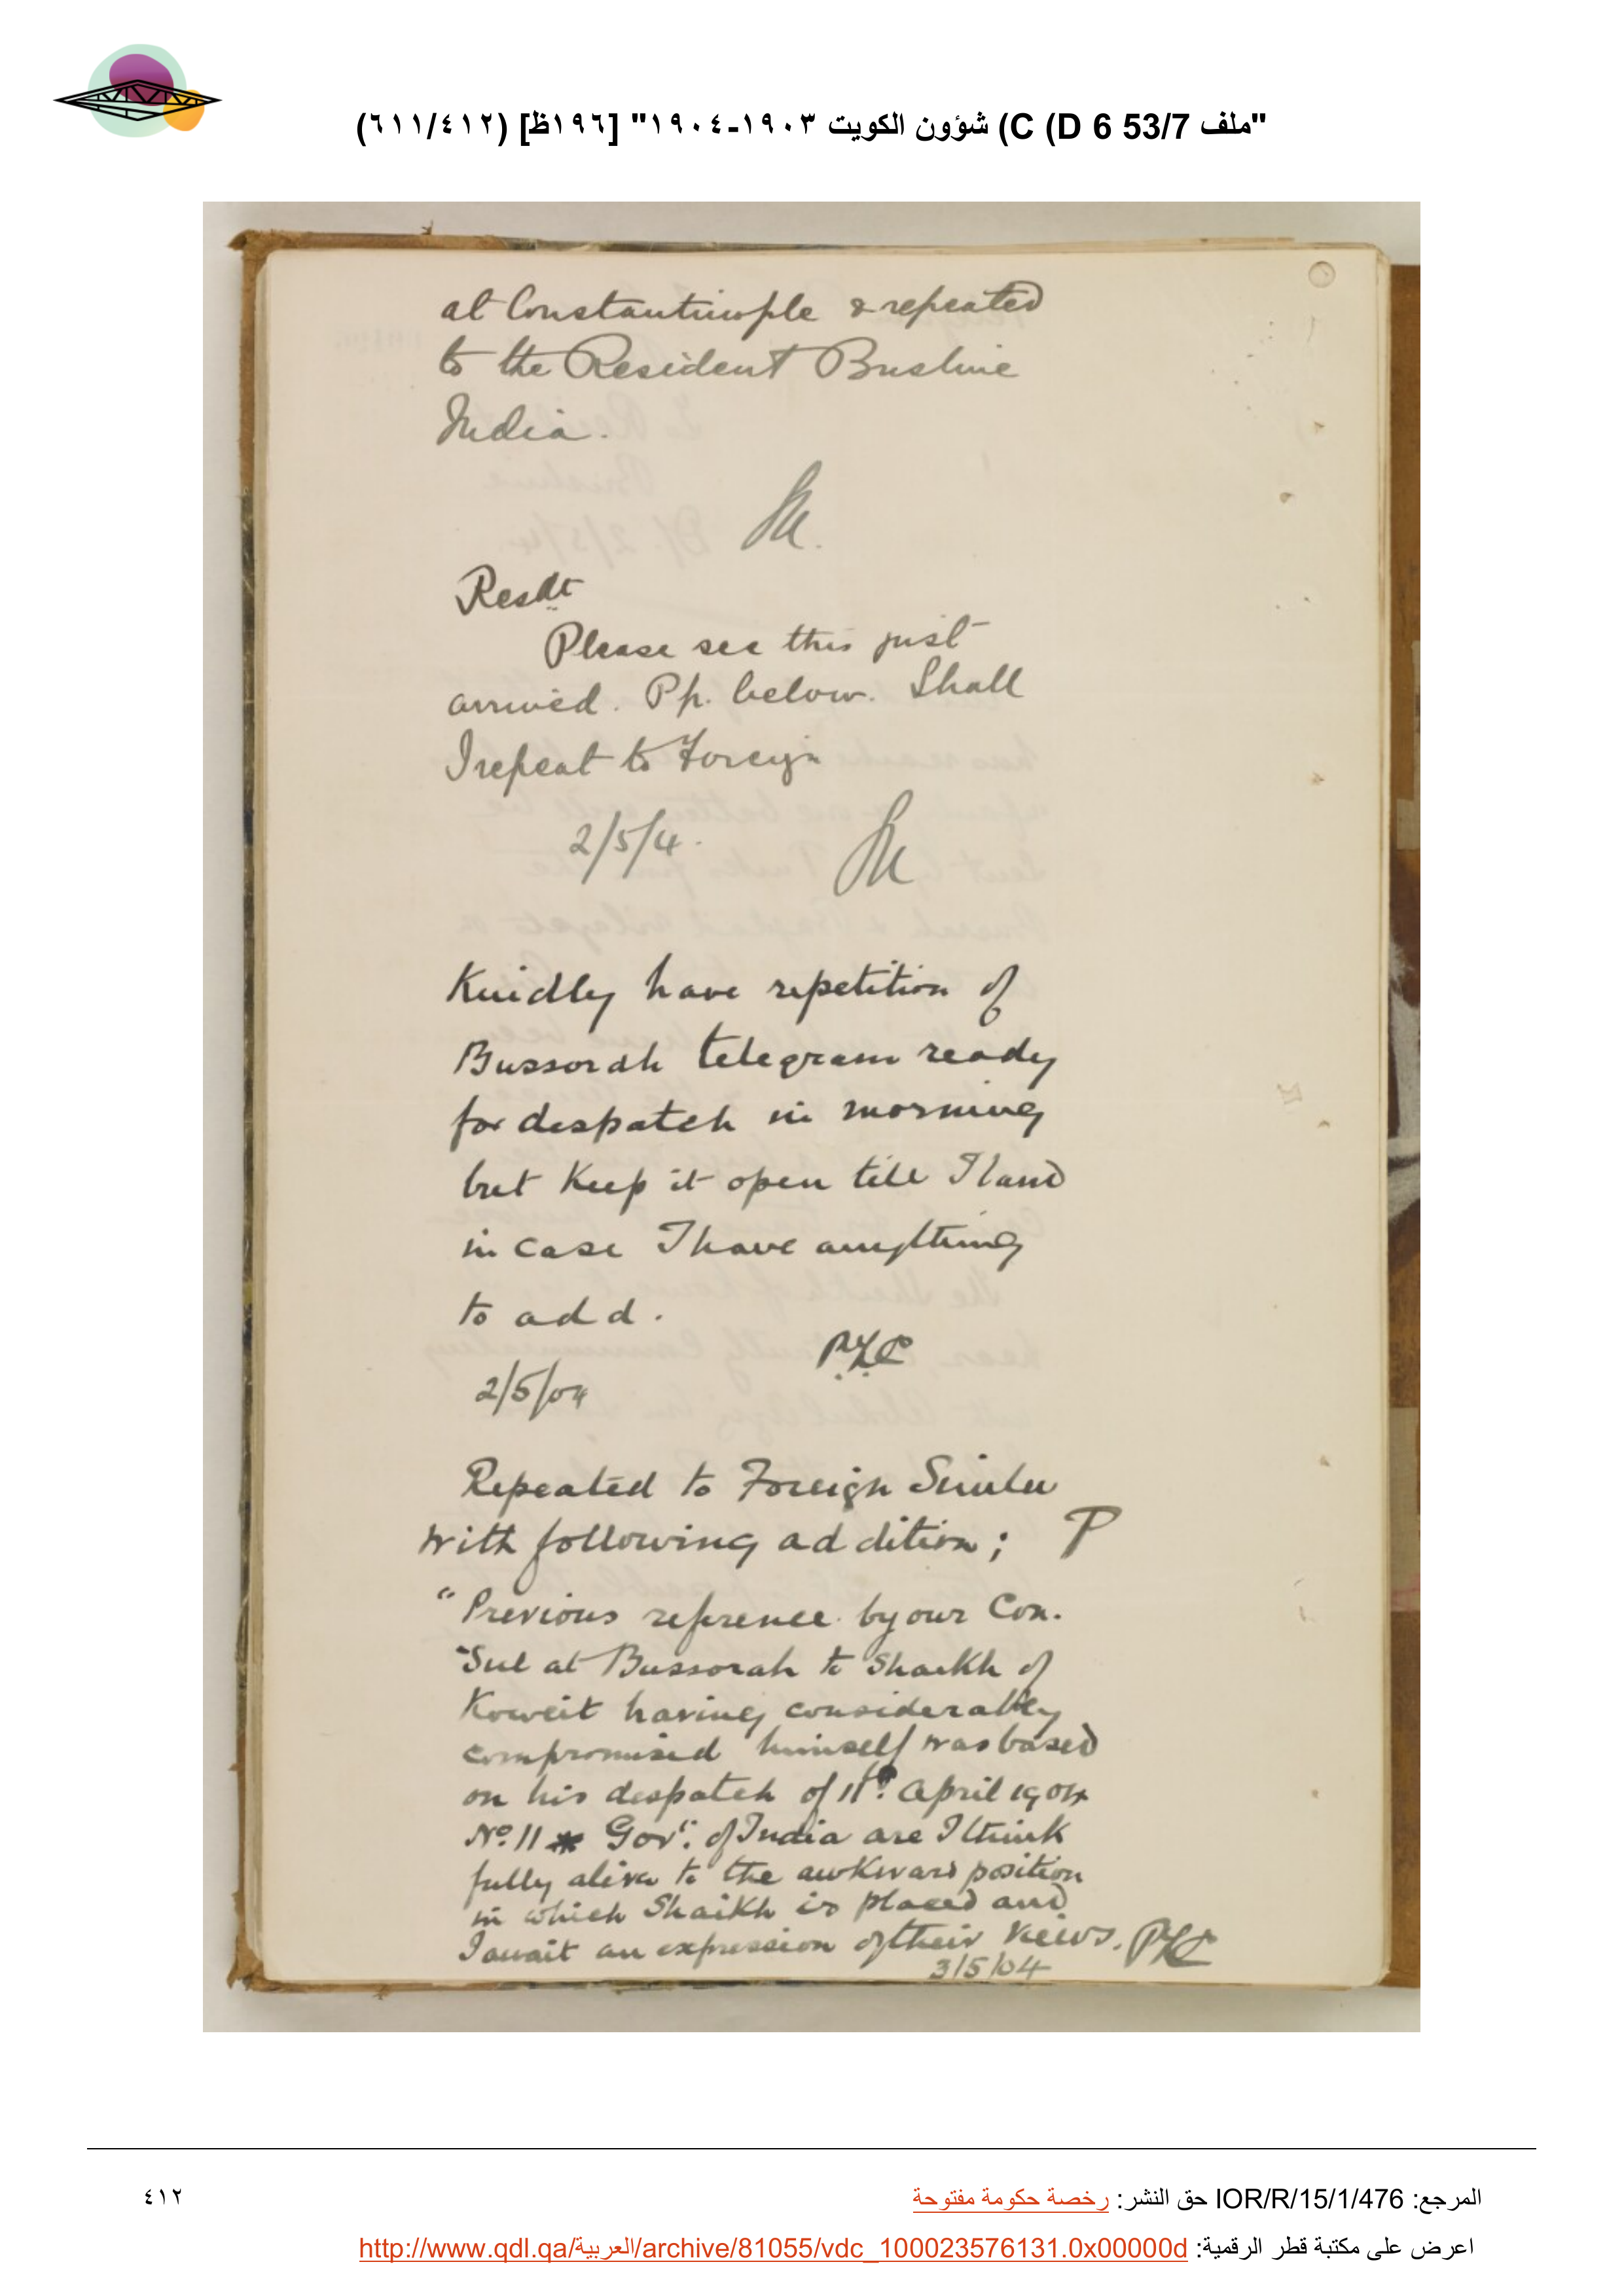 "ملف 53/7 C (D 6) شؤون الكويت ١٩٠٣-١٩٠٤" [١٩٦ظ] (٦١١/٤١٢)
at Constantinople & repeated
to the Resident Bushire
India.
Resdt
Please see this just
arrived. Pp. below. Shall
I repeat to Foreign
2/5/4.
Kindly have repetition of
Bussorah telegram ready
for despatch in morning
but keep it open till I land
in case I have anything
to add.
PZC
2/5/04
Repeated to Foreign Simla
with following addition; P
"Previous reference by our Con-
"sul at Bussorah to Shaikh of
Koweit having considerably
compromised himself was based
on his despatch of 11th April 1904
No. 11 * Govt. of India are I think
fully alive to the awkward position
in which Shaikh is placed and
I await an expression of their views. PZC
3/5/04
المرجع: IOR/R/15/1/476 حق النشر: رخصة حكومة مفتوحة
٤١٢
اعرض على مكتبة قطر الرقمية: http://www.qdl.qa/العربية/archive/81055/vdc_100023576131.0x00000d